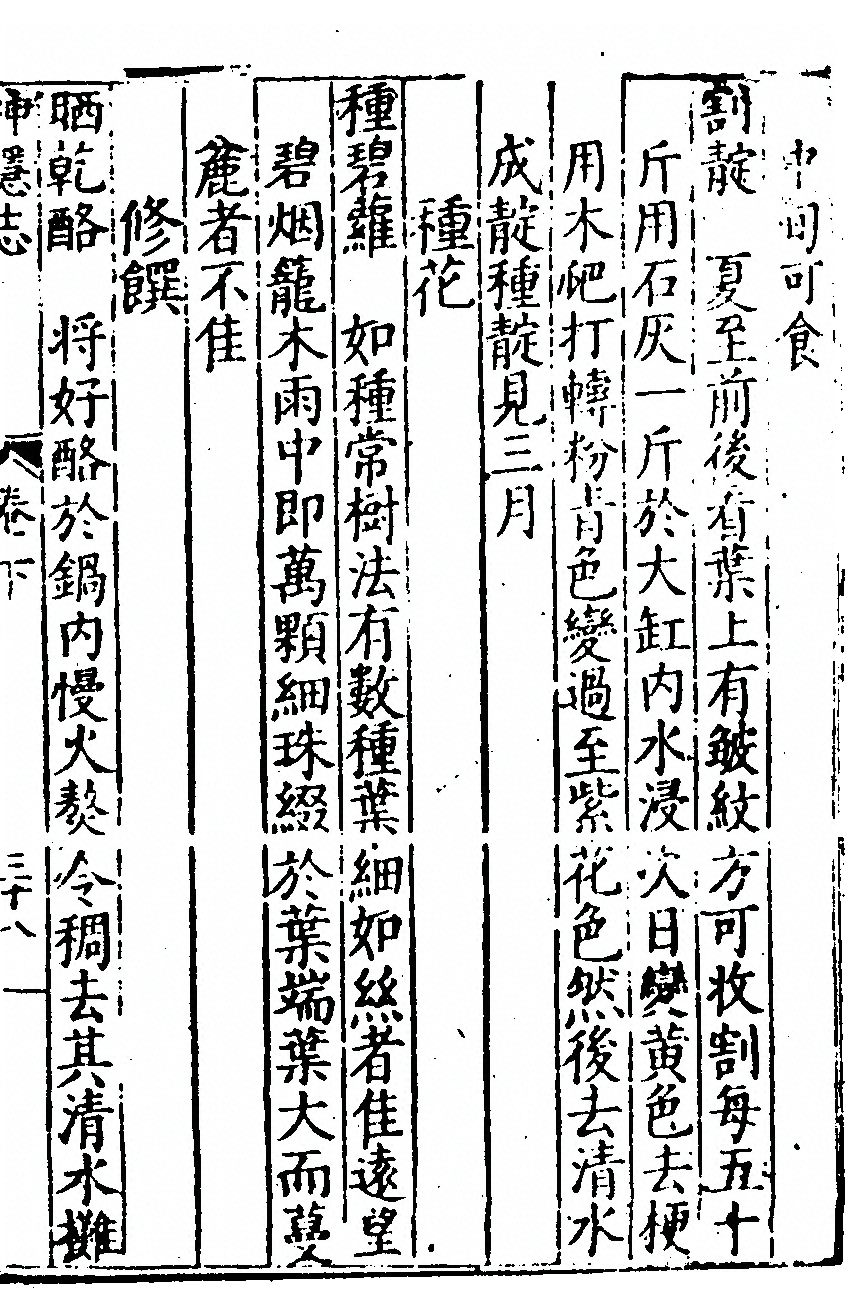 中旬可食
割靛　夏至前後看葉上有皴紋方可收割每五十
斤用石灰一斤於大缸内水浸次日變黄色去梗
用木爬打轉粉青色變過至紫花色然後去清水
成靛種靛見三月
種花
種碧蘿　如種常樹法有數種葉細如絲者佳遠望
碧烟籠木雨中即萬顆細珠綴於葉端葉大而蔓
麄者不佳
修饌
晒乾酪　将好酪於鍋内慢火熬令稠去其清水攤
神隱志　卷下　三十八